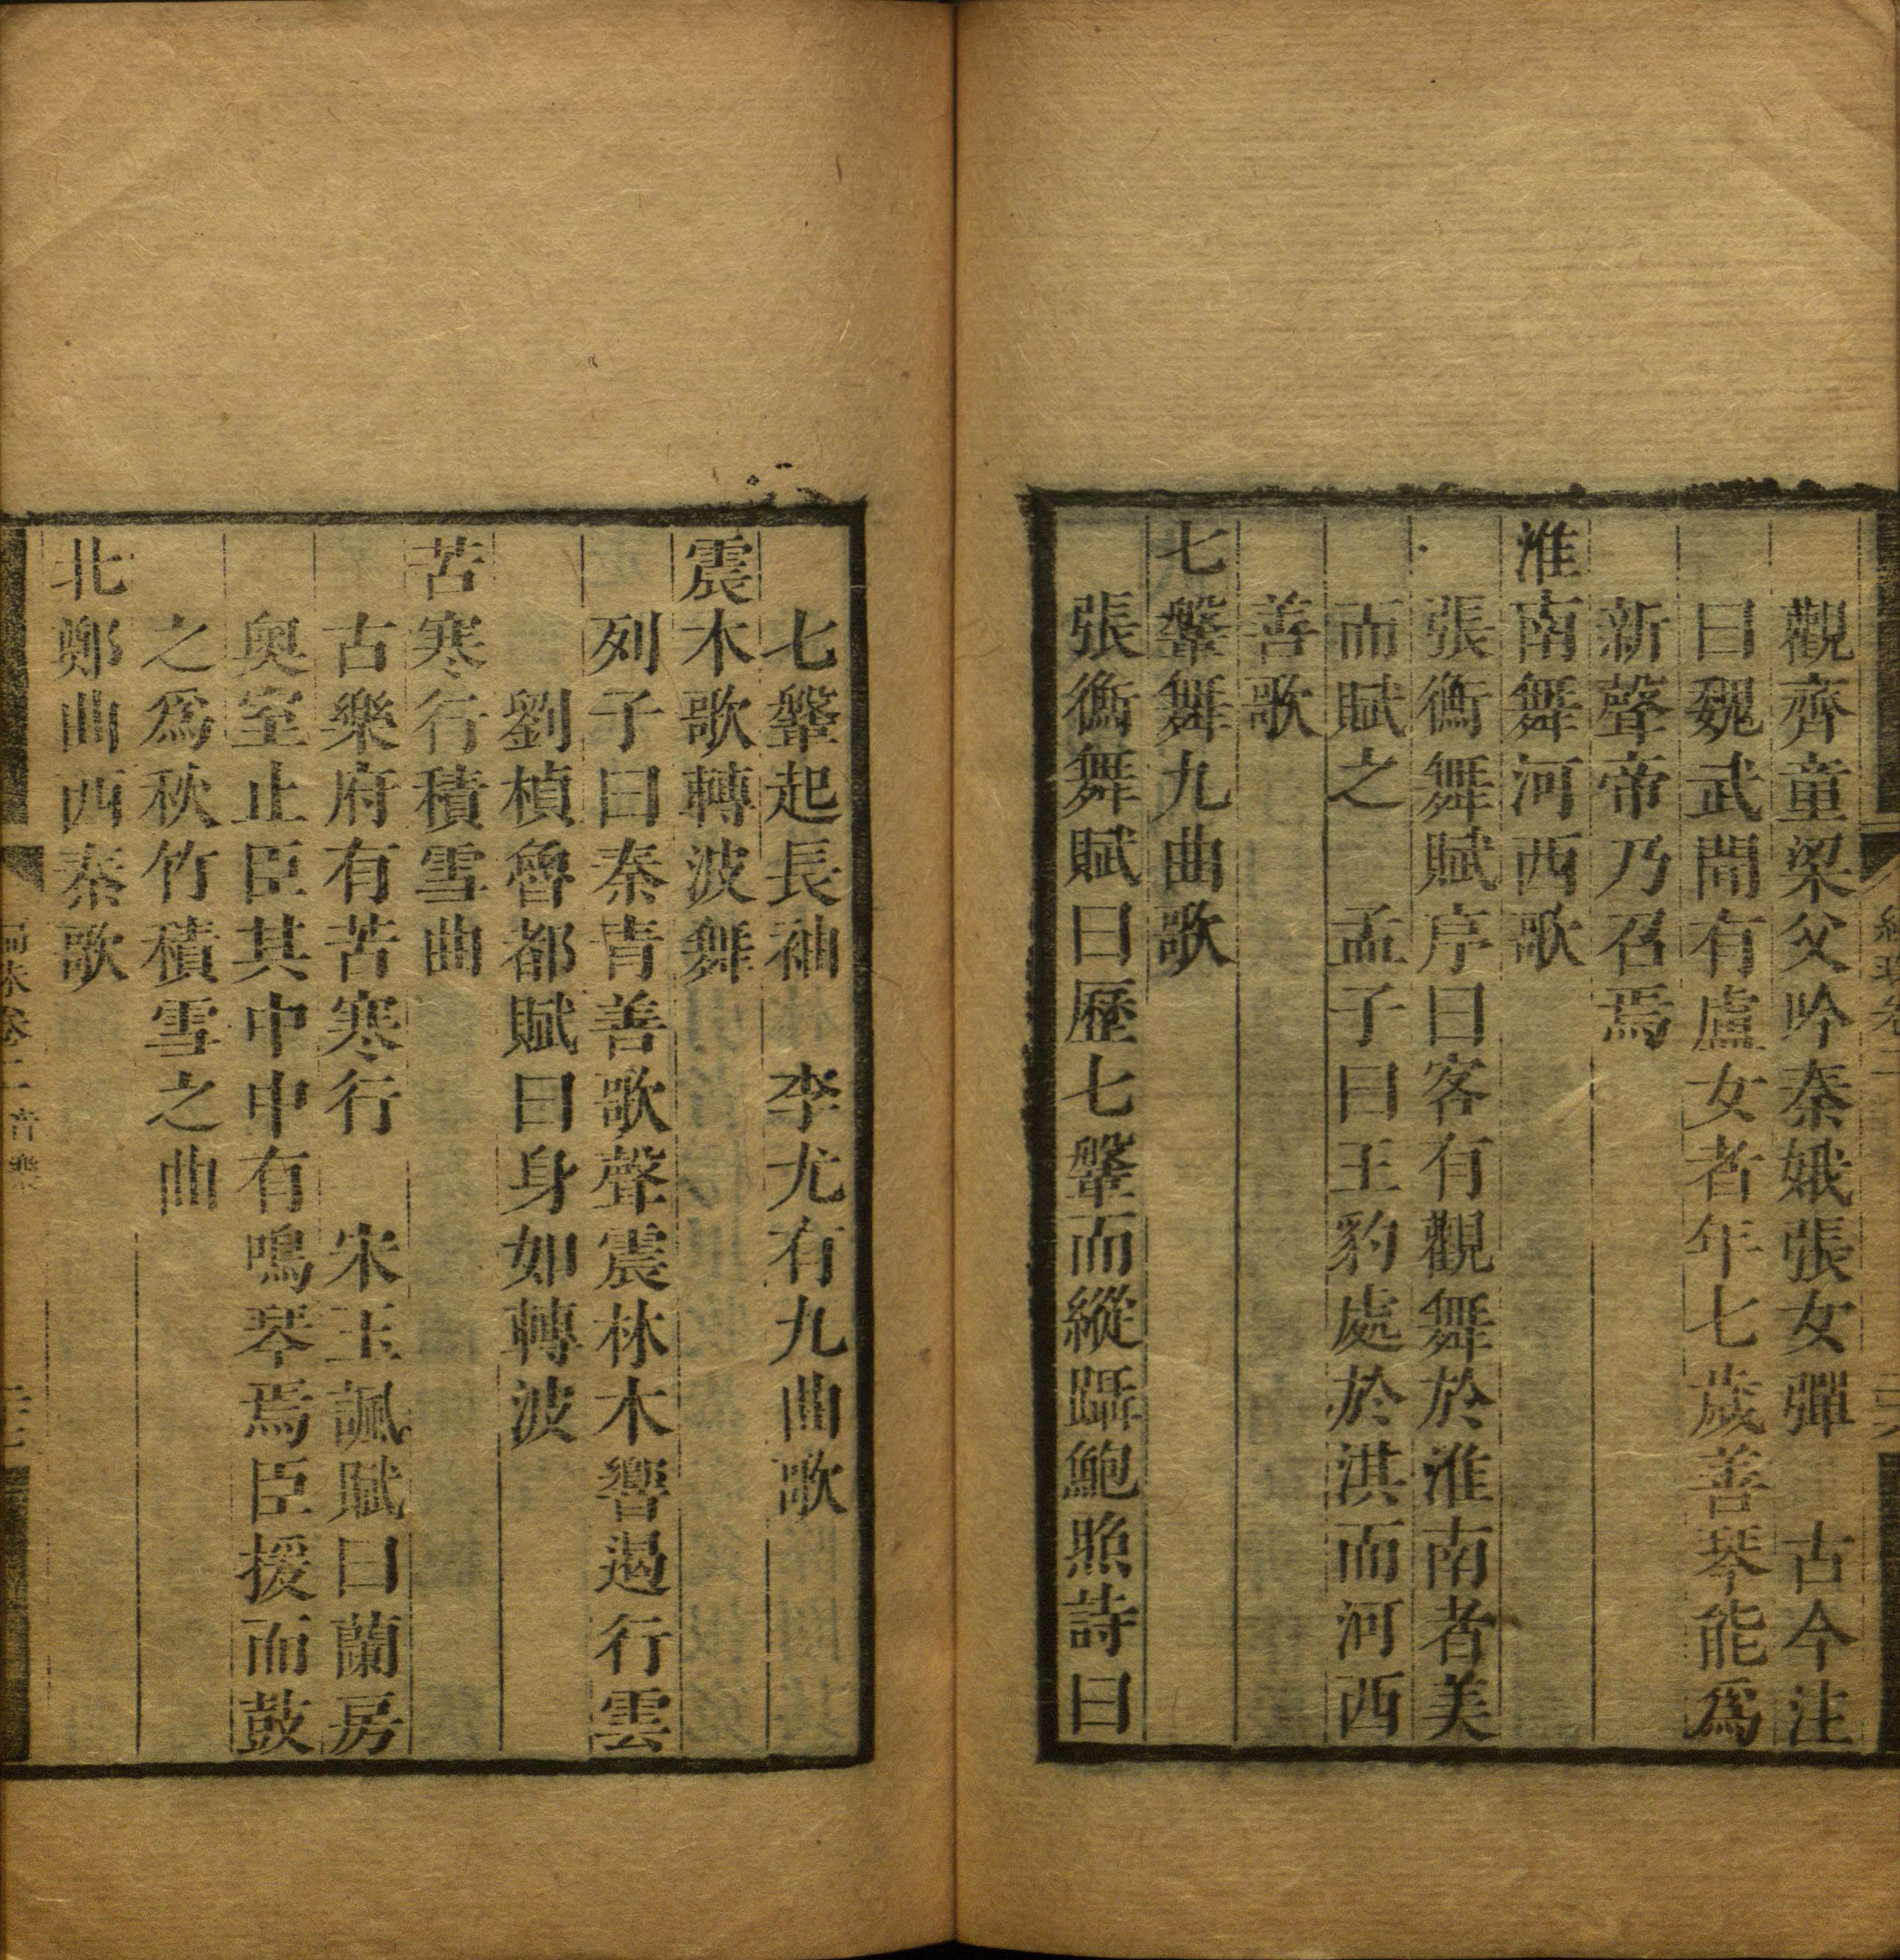 觀齊童梁父吟秦娥張女彈　古今注
曰魏武聞有盧女者年七歲善琴能為
新聲帝乃召焉
淮南舞河西歌
張衡舞賦序曰客有觀舞於淮南者美
而賦之　孟子曰王豹處於淇而河西
善歌
七鞶舞九曲歌
張衡舞賦曰歷七鞶而縱躡鮑照詩曰
七鞶起長袖　李尤有九曲歌
震木歌轉波舞
列子曰秦青善歌聲震林木響遏行雲
劉楨魯都賦曰身如轉波
苦寒行積雪曲
古樂府有苦寒行　宋玉諷賦曰蘭房
奧室止臣其中中有鳴琴焉臣援而鼓
之為秋竹積雪之曲
北鄭曲西秦歌
卷二 音樂